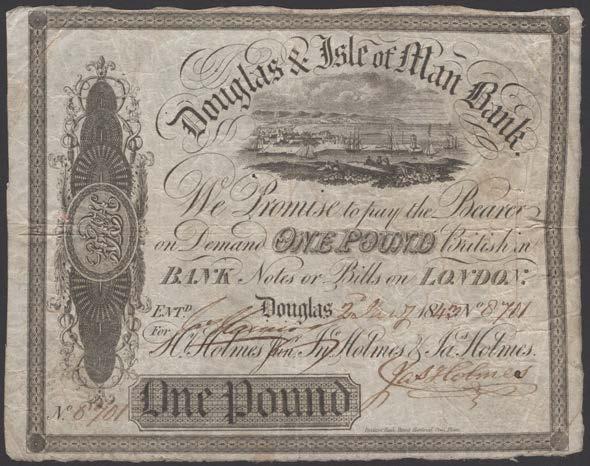 Douglas & Isle of Man Bank.
We Promise to pay the Bearer
on Demand ONE POUND British in
BANK Notes or Bills on LONDON.
Douglas 184 No 8701
ENTD
For Hy. Holmes Junr. Jno. Holmes & Jas. Holmes.
Jas Holmes
No 8701
One Pound